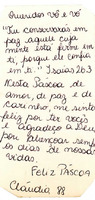 Queridos vô e vó
"Tu conservarás em
paz aquele cuja
mente está firme em
ti, porque ele confia
em ti." Isaías 26.3
Nesta Páscoa de
amor, de paz e de
carinho, me sinto
feliz por ter vocês
e agradeço a Deus
por abençoar sempre
os dias de nossas
vidas.
FELIZ PÁSCOA
Cláudia 88